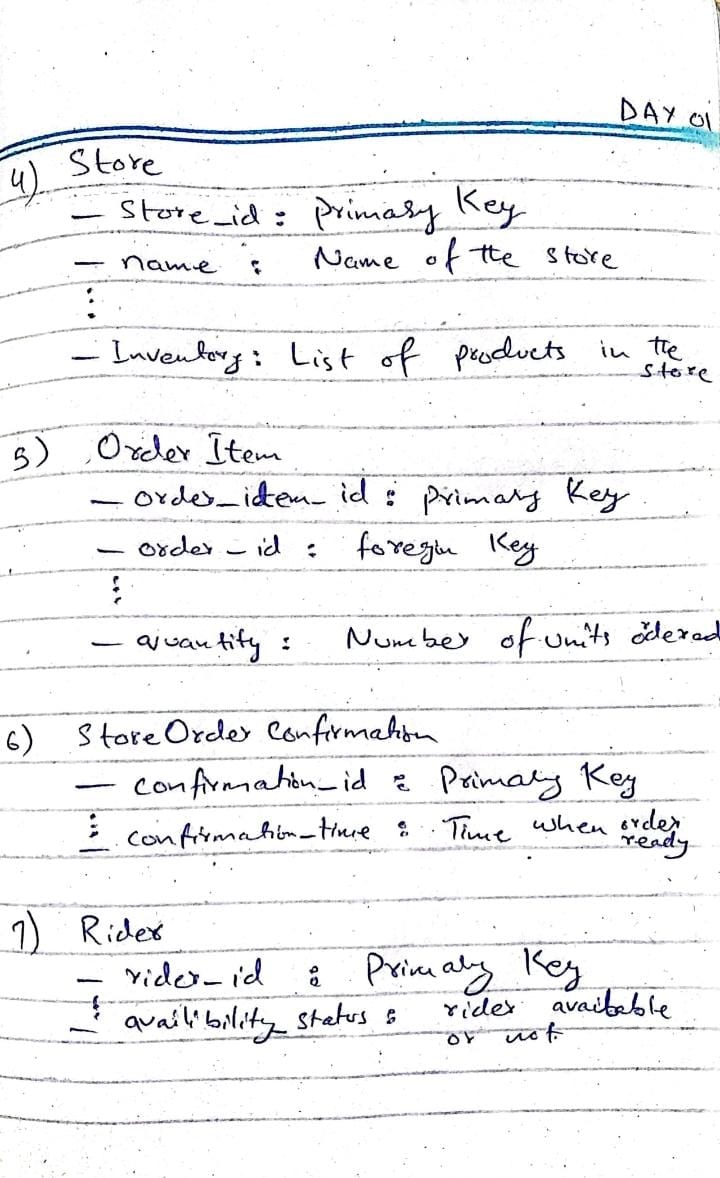 DAY 01
4) Store
— Store_id : primary Key
— name : Name of the store
⋮
— Inventory : List of products in the store
5) Order Item
— order_idem_id : primary Key
— order_id : foregin Key
⋮
— quantity : Number of units oderad
6) Store Order Confirmation
— confirmation_id : Primary Key
⋮
— confirmation_time : Time when order ready
7) Rider
— rider_id : Primary Key
⋮
— availibility_status : rider available
or not.